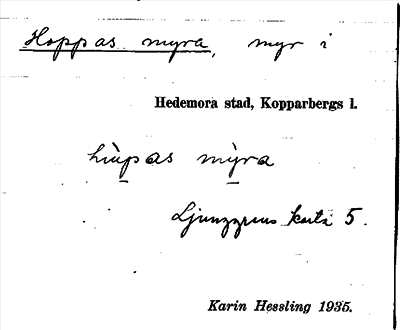 Hoppas myra, myr i
Hedemora stad, Kopparbergs l.
hùpas mỳra
Ljunggrens karta 5.
Karin Hessling 1935.